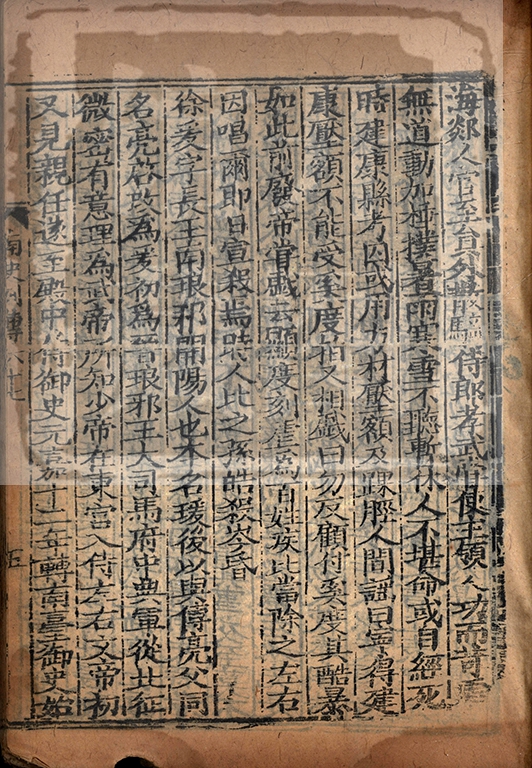 海郯人官至員外散騎侍郎孝武嘗使主領人功而苛虐
無道動加捶撲暑雨寒雪不聽暫休人不堪命或自經死
時建康縣考囚或用方材壓額及踝脛人間謠曰寧得建
康壓額不能受奚度拍又相戲曰勿反顧付奚度其酷暴
如此前廢帝嘗戲云顯度刻虐爲百姓疾比當除之左右
因唱爾即日宣殺焉時人比之孫皓殺岑昏
徐爰字長玉南琅邪開陽人也本名瑗後以與傅亮父同
名亮啓改爲爰初爲晉琅邪王大司馬府中典軍從北征
微密有意理爲武帝所知少帝在東宮入侍左右文帝初
又見親任遂至殿中侍御史元嘉十二年轉南臺御史始
南史列傳六十七
五